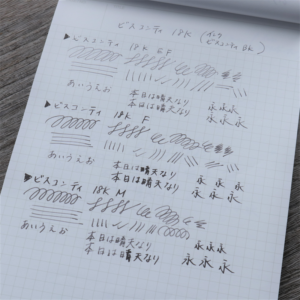 ビスコンティ 18K (インク ビスコンティ BK)
▶ビスコンティ 18K EF
あいうえお 本日は晴天なり 永永永
本日は晴天なり 永永永
▶ビスコンティ 18K F
あいうえお 本日は晴天なり 永永永
本日は晴天なり 永永永
▶ビスコンティ 18K M
あいうえお 本日は晴天なり 永永永
本日は晴天なり 永永永